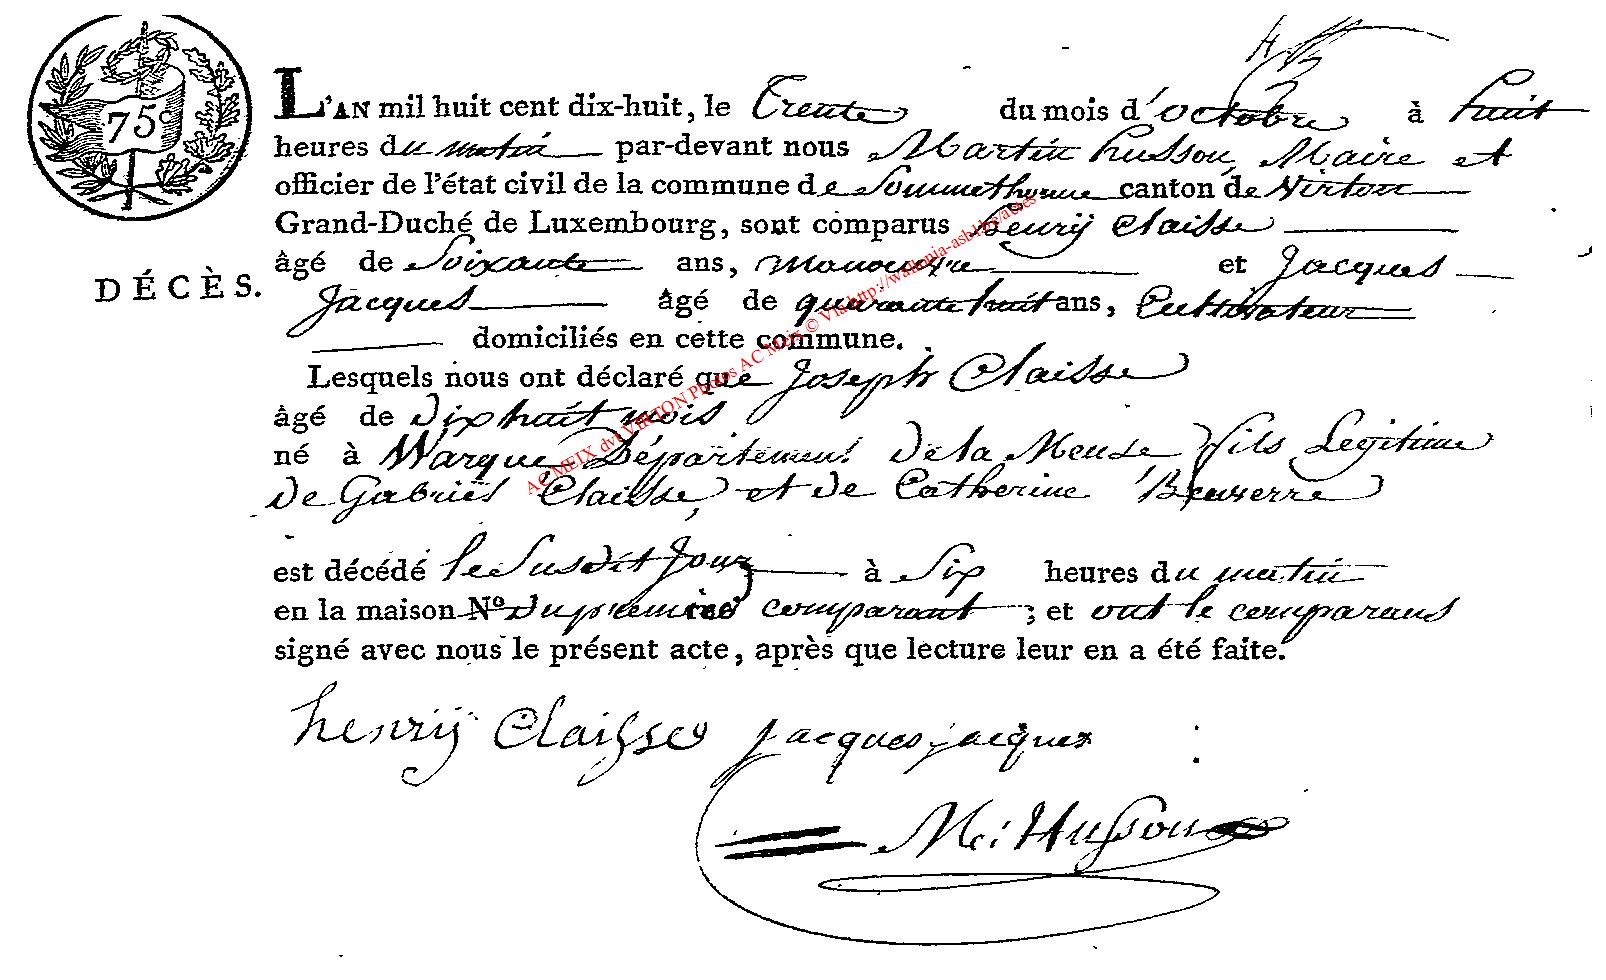 75c
L'AN mil huit cent dix-huit, le Trente du mois d'octobre à huit
heures du matin par-devant nous Martin husson, Maire et
officier de l'état civil de la commune de Sommethonne canton de Virton
Grand-Duché de Luxembourg, sont comparus henrÿ Claisse
âgé de Soixante ans, manouvre et Jacques
DÉCÈS.
Jacques âgé de quarante huit ans, Cultivateur
domiciliés en cette commune.
Lesquels nous ont déclaré que Joseph Claisse
âgé de dix huit mois
né à Warque Département De la Meuse fils Legitime
De Gabriël Claisse, et de Catherine
est décédé le Susdit Jour à Six heures du matin
en la maison No Du premier comparant ; et ont le comparans
signé avec nous le présent acte, après que lecture leur en a été faite.
henrÿ Claisse jacques jacques
M: Husson
AC MEIX dvt VIRTON Photos AC Meix © Via http://wallonia-asbl.be/actes